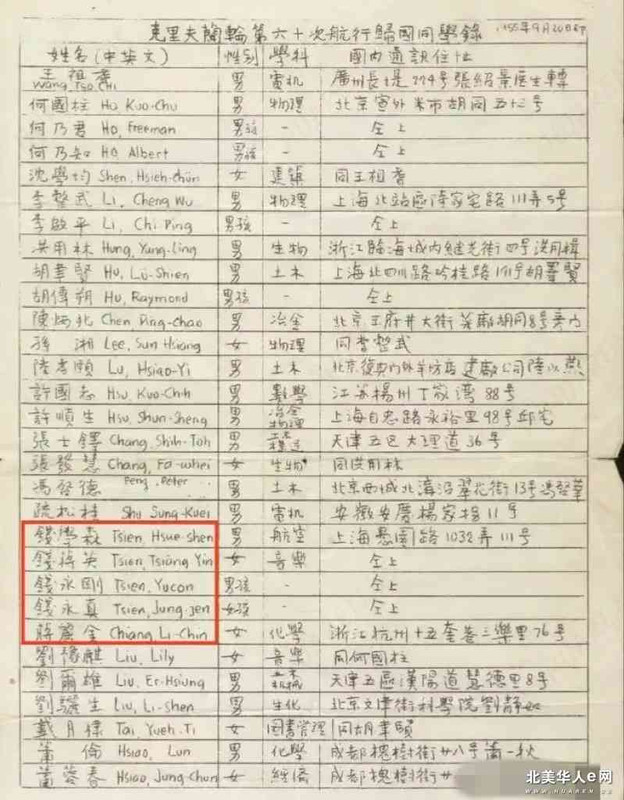 克里夫蘭輪第六十次航行歸國同學錄 1955年9月20日
姓名(中英文) 性别 學科 國内通訊住址
王祖耆 Wang, Tso Chi 男 電机 廣州長堤 274号張紹景医生轉
何國柱 Ho Kuo-Chu 男 物理 北京宣外米市胡同五十二号
何乃君 Ho, Freeman 男孩 - 仝上
何乃知 Ho Albert 男孩 - 仝上
沈學均 Shen, Hsieh-chün 女 建築 同王祖耆
李整武 Li, Cheng Wu 男 物理 上海北站區陸家宅路111弄5号
李啟平 Li, Chi Ping 男孩 - 仝上
洪用林 Hung, Yung-ling 男 生物 浙江臨海城内継光街四号洪用楫
Hu, Lü-Shien 男 土木 上海北四川路
胡偉朔 Hu, Raymond 男孩 - 仝上
陳炳兆 Chen Ping-chao 男 冶金 北京王府井大街菜廠胡同8号旁内
孫湘 Lee, Sun Hsiang 女 物理 同李整武
陸孝頤 Lu, Hsiao-Yi 男 土木 北京復興門外羊坊店建廠公司陸以燕
許國志 Hsu, Kuo-Chih 男 數學 江苏揚州丁家湾88号
許順生 Hsu, Shun-Sheng 男 冶金物理 上海自忠路永裕里98号邱宅
張士鐸 Chang, Shih-Toh 男 天津五区大理道36号
張發慧 Chang, Fa-whei 女 生物 同洪用林
馮啓德 Feng, Peter 男 土木 北京西城北海沿翠花街13号馮啓華
疏松桂 Shu Sung-Kuei 男 電机 安徽安慶楊家拐11号
錢學森 Tsien, Hsue-shen 男 航空 上海愚園路1032弄111号
錢蔣英 Tsien, Tsiang Yin 女 音樂 仝上
錢永剛 Tsien, Yucon 男孩 - 仝上
錢永真 Tsien, Jung-jen 女孩 - 仝上
蔣麗金 Chiang, Li-Chin 女 化學 浙江杭州十五奎巷三樂里76号
劉豫麒 Liu, Lily 女 音樂 同何國柱
劉爾雄 Liu, Er-Hsiung 男 机械 天津五區漢陽道慧德里8号
劉驪生 Liu, Li-shen 男 生化 北京文津街科學院劉静和
戴月棣 Tai, Yueh-Ti 女 図書管理 同胡聿賢
蕭倫 Hsiao, Lun 男 化學 成都槐樹街廿八号蕭一秋
蕭蓉春 Hsiao, Jung-Chun 女 経済 成都槐樹街廿
北美华人e网
WWW.HUAREN.US